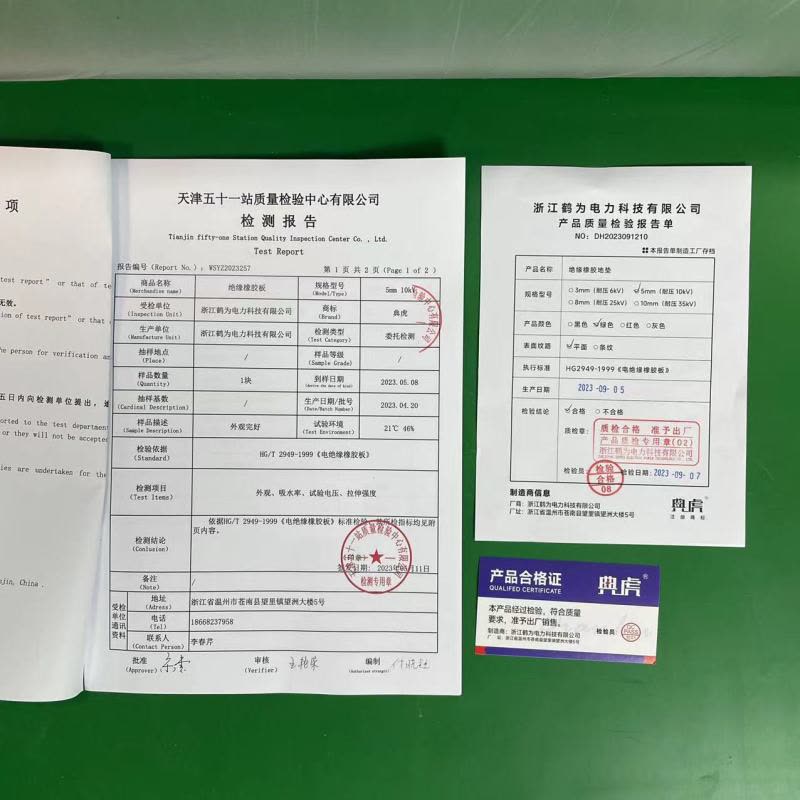 项
test report" or that of t
无效。
ion of test report" or that
he person for verification and
五日内向检测单位提出，逾
orted to the test departme
or they will not be accepted
ies are undertaken for the
njin, China.
天津五十一站质量检验中心有限公司
检 测 报 告
Tianjin fifty-one Station Quality Inspection Center Co. , Ltd.
Test Report
报告编号(Report No.)： WSYZ2023257 第 1 页 共 2 页(Page 1 of 2)
商品名称 (Merchandise name) 绝缘橡胶板 规格型号 (Model/Type) 5mm 10kV
受检单位 (Inspection Unit) 浙江鹤为电力科技有限公司 商标 (Brand) 典虎
生产单位 (Manufacture Unit) 浙江鹤为电力科技有限公司 检测类型 (Test Category) 委托检测
抽样地点 (Place) / 样品等级 (Sample Grade) /
样品数量 (Quantity) 1块 到样日期 (Arrive the date of kind) 2023.05.08
抽样基数 (Cardinal Description) / 生产日期/批号 (Date/Batch Number) 2023.04.20
样品描述 (Sample Description) 外观完好 试验环境 (Test Environment) 21℃ 46%
检验依据 (Standard) HG/T 2949-1999《电绝缘橡胶板》
检测项目 (Test Items) 外观、吸水率、试验电压、拉伸强度
检测结论 (Conlusion) 依据HG/T 2949-1999《电绝缘橡胶板》标准检验，所检指标均见附
页内容。
(印章)
签发日期: 2023年05月11日
天津五十一站质量检验中心有限公司
检测专用章
备注 (Note) /
受检单位通讯资料
地址 (Adress) 浙江省温州市苍南县望里镇望洲大楼5号
电话 (Tel) 18668237958
联系人 (Contact Person) 李春芹
批准 (Approver) 审核 (Verifier) 编制 (Authorized strangers)
浙江鹤为电力科技有限公司
产品质量检验报告单
NO: DH2023091210
本报告单制造工厂存档
产品名称 绝缘橡胶地垫
规格型号 ○3mm (耐压 6kV) ✓5mm (耐压 10kV)
○8mm (耐压 25kV) ○10mm (耐压 35kV)
产品颜色 ○黑色 ✓绿色 ○红色 ○灰色
表面纹路 ✓平面 ○条纹
执行标准 HG2949-1999《电绝缘橡胶板》
生产日期 2023-09-05
检验结论 ✓合格 ○不合格
质检章:
质检合格 准予出厂
产品质检专用章(02)
浙江鹤为电力科技有限公司
检验员:
检验
合格
08
检验日期: 2023-09-07
制造商信息
厂商: 浙江鹤为电力科技有限公司
厂址: 浙江省温州市苍南县望里镇望洲大楼5号
典虎®
注册商标
产品合格证
QUALIFED CERTIFICATE
典虎®
本产品经过检验，符合质量
要求，准予出厂销售。
制造商: 浙江鹤为电力科技有限公司
厂 址: 浙江省温州市苍南县望里镇望洲大楼5号
检验员
QC
PASS